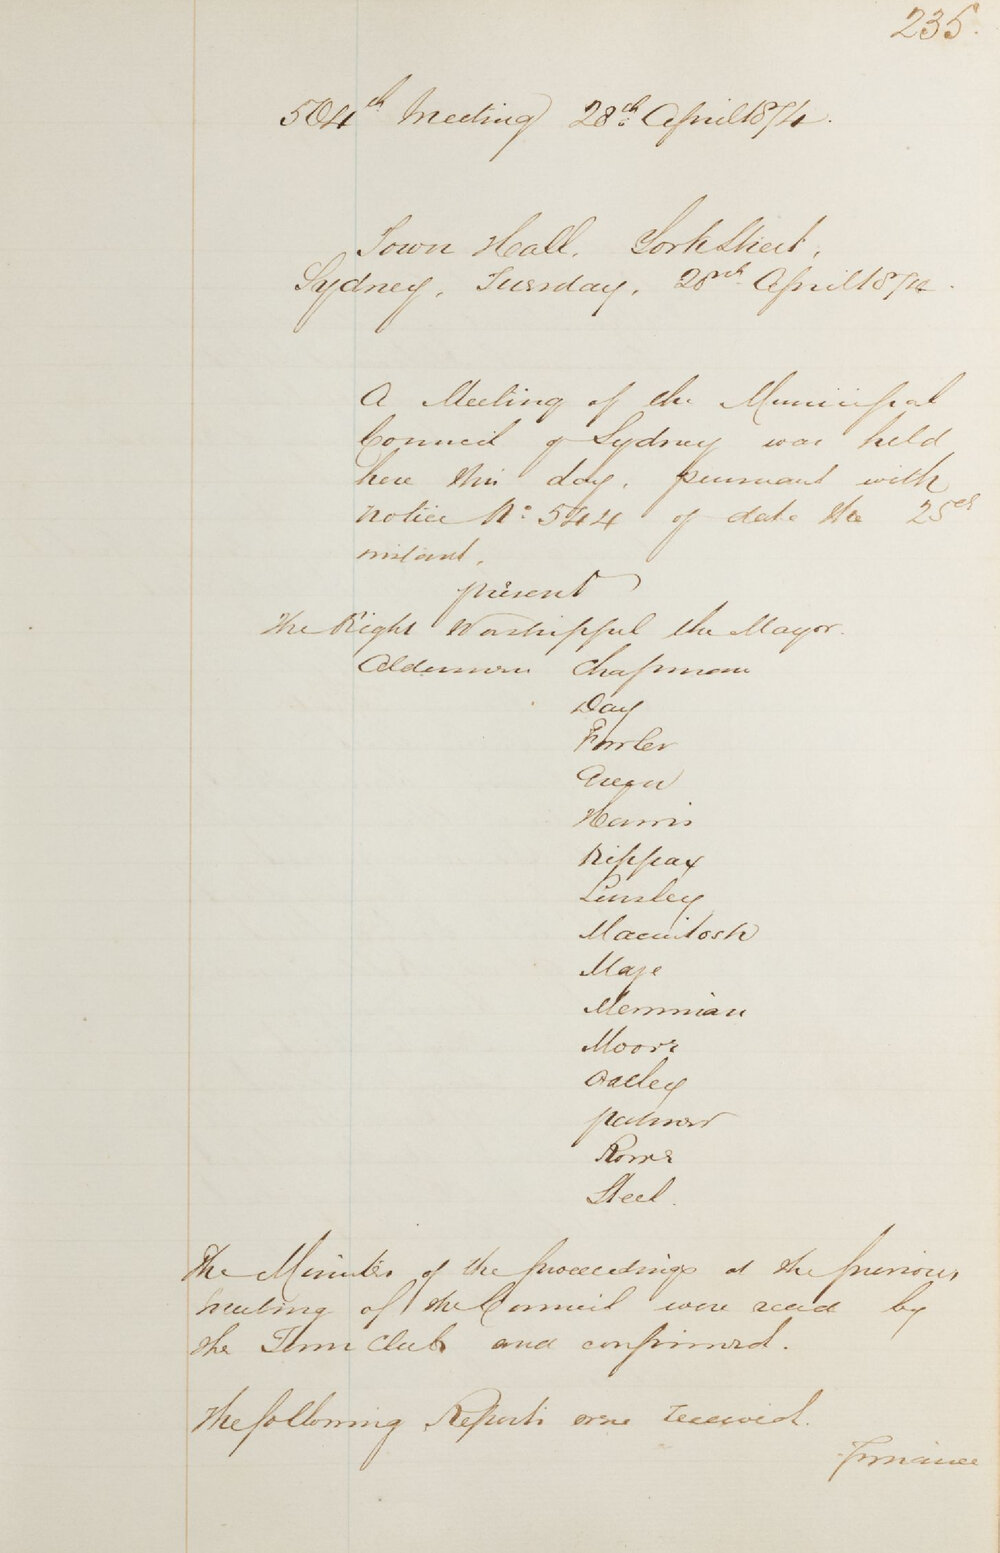 235.
504th Meeting 28th April 1874.
Town Hall, York Street,
Sydney, Tuesday, 28th April 1874.
A Meeting of the Municipal
Council of Sydney was held
here this day, pursuant with
notice No. 544 of date the 25th
instant,
present
The Right Worshipful the Mayor.
Aldermen Chapman
Day
Fowler
Green
Harris
Kippax
Linsley
Macintosh
Maze
Merriman
Moore
Oatley
Palmer
Rowe
Steel.
The Minutes of the proceedings at the previous
meeting of the Council were read by
the Town Clerk and confirmed.
The following Reports were received.
Finance